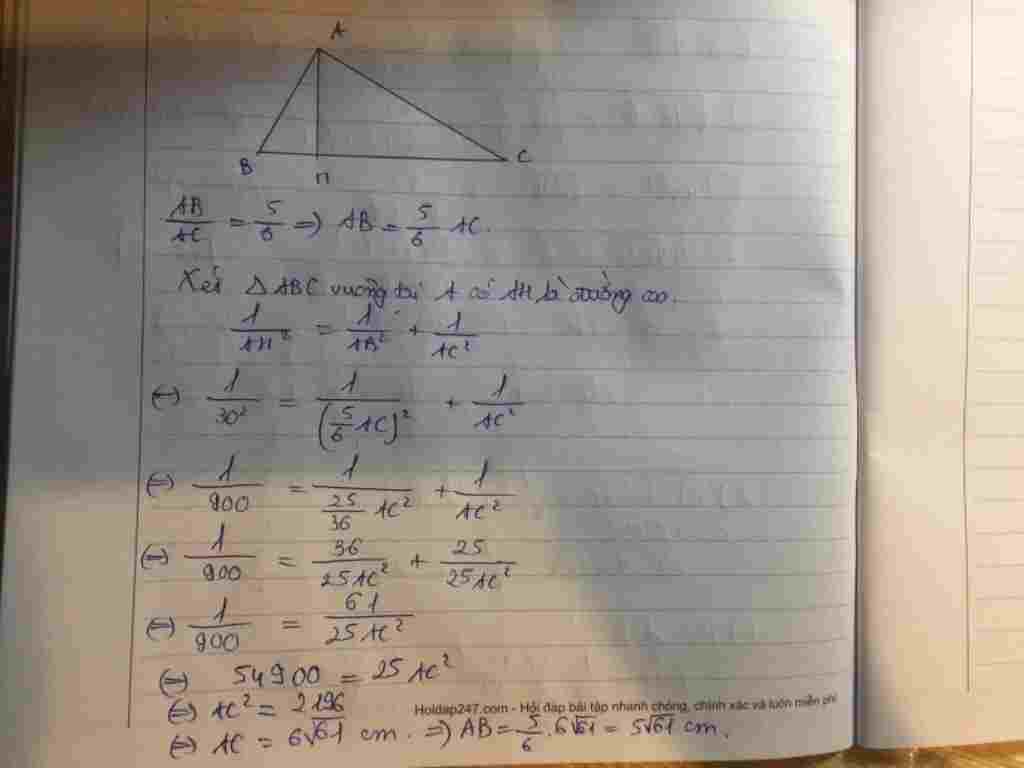 A
B H C
AB/AC = 5/6 => AB = 5/6 AC.
Xét Δ ABC vuông tại A có AH là đường cao.
1/AH² = 1/AB² + 1/AC²
(=) 1/30² = 1/(5/6 AC)² + 1/AC²
(=) 1/900 = 1/(25/36 AC²) + 1/AC²
(=) 1/900 = 36/25AC² + 25/25AC²
(=) 1/900 = 61/25AC²
(=) 54900 = 25 AC²
(=) AC² = 2196
Holdap247.com - Hỏi đáp bài tập nhanh chóng, chính xác và luôn miễn phí
(=) AC = 6√61 cm. => AB = 5/6 . 6√61 = 5√61 cm.